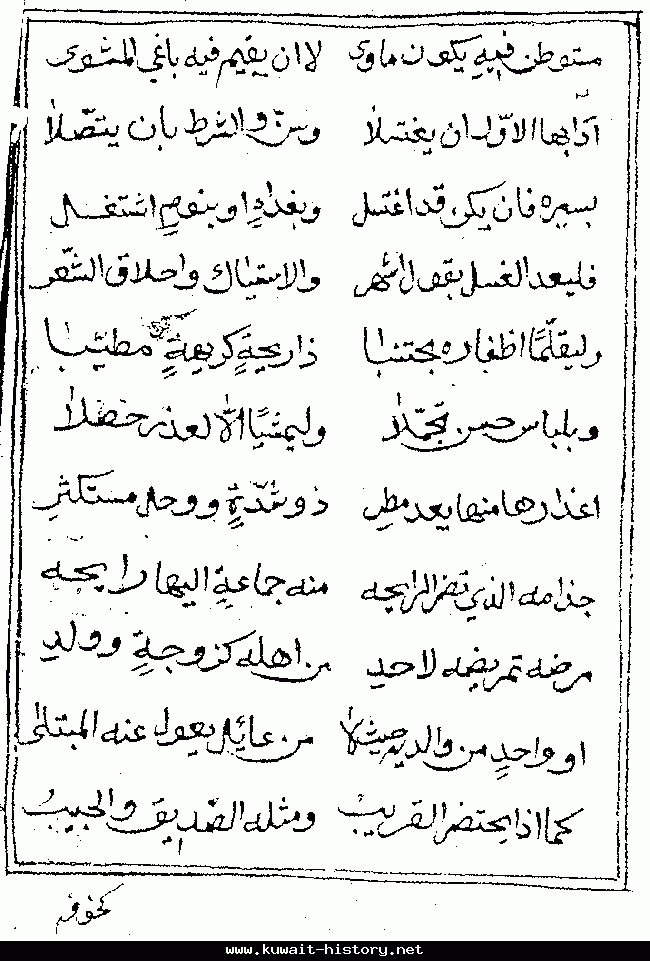 مستوطن فيه يكون ماوى لا ان يقيم فيه باغي المثوى
آدابها الاوّل ان يغتسلا وسنّ والشرط بان يتصّلا
بسيره فان يكن قد اغتسل وبغداءٍ او بنومٍ اشتغل
فليعد الغسل بقول اشهر والاستياك واحلاق الشّعر
وليقلّمًا اظفاره مجتنبا ذا ريحةٍ كريهةٍ مطيّبا
وبلباس حسن تجمّلا وليمشيًا الّا لعذر حصلا
اعذارها منها بعد مطرِ ذو شدّةٍ ووحل مستكثرِ
جذامه الذي تضر الرايحه منه جماعةٍ اليها رايحه
مرضه تمريضه لاحدِ من اهله كزوجةٍ وولدِ
او واحدٍ من والديه حيث لا من عائلٍ يعول عنه المبتلى
كما اذا يحتضر القريبُ ومثله الصّديق والحبيبُ
كخوفه
www.kuwait-history.net